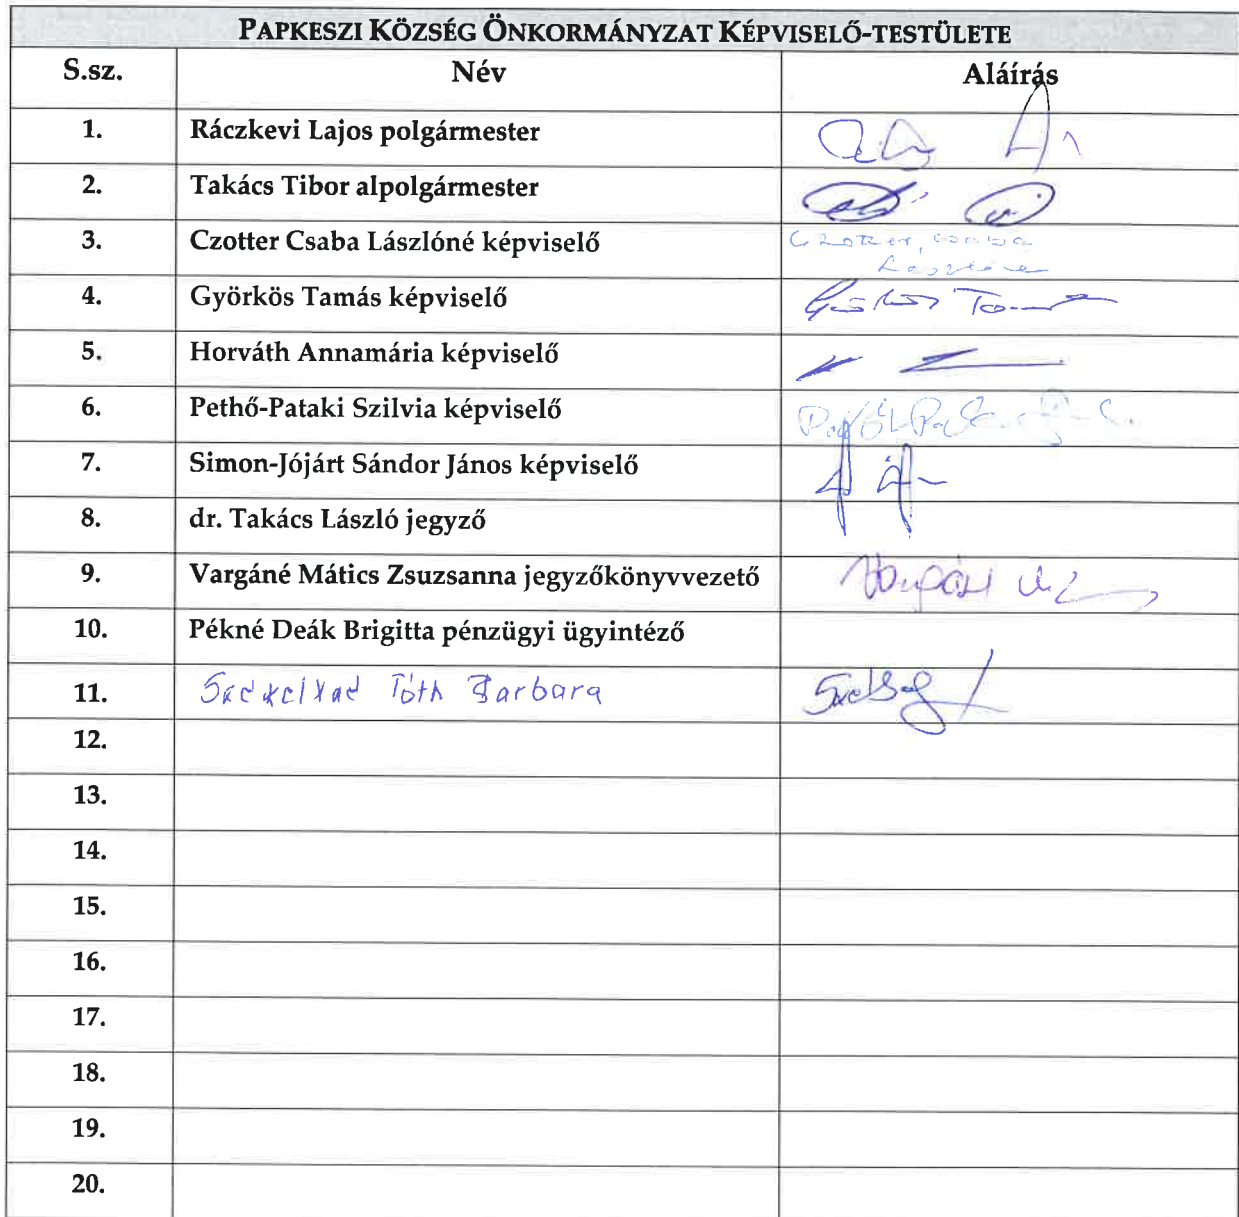 PAPKESZI KÖZSÉG ÖNKORMÁNYZAT KÉPVISELŐ-TESTÜLETE
S.sz. Név Aláírás
1. Ráczkevi Lajos polgármester
2. Takács Tibor alpolgármester
3. Czotter Csaba Lászlóné képviselő Czotter Csaba
Lászlóné
4. Györkös Tamás képviselő
5. Horváth Annamária képviselő
6. Pethő-Pataki Szilvia képviselő
7. Simon-Jójárt Sándor János képviselő
8. dr. Takács László jegyző
9. Vargáné Mátics Zsuzsanna jegyzőkönyvvezető
10. Pékné Deák Brigitta pénzügyi ügyintéző
11. Tóth Barbara
12.
13.
14.
15.
16.
17.
18.
19.
20.